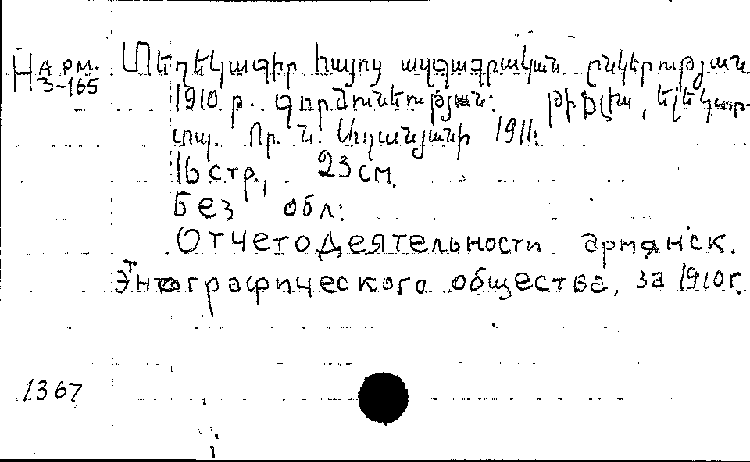 Н арм. 3-165
Տեղեկագիր հայոց ազգագրական ընկերության
1910 թ. գործունեության: Թիֆլիս, էլեկտր-
տպ. Օր. Ն. Աղանյանի 1911:
16 стр., 23 см.
Без обл:
Отчет о деятельности армянск.
Этнографического общества, за 1910 г.
1367